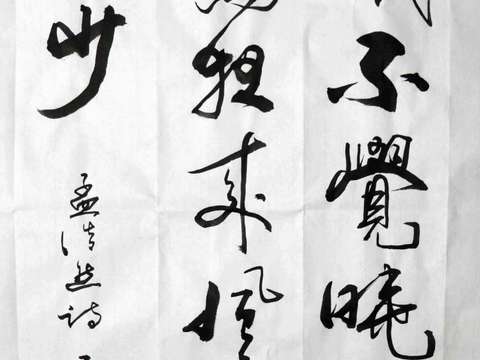 不覺曉
夜來風
少
孟浩然詩